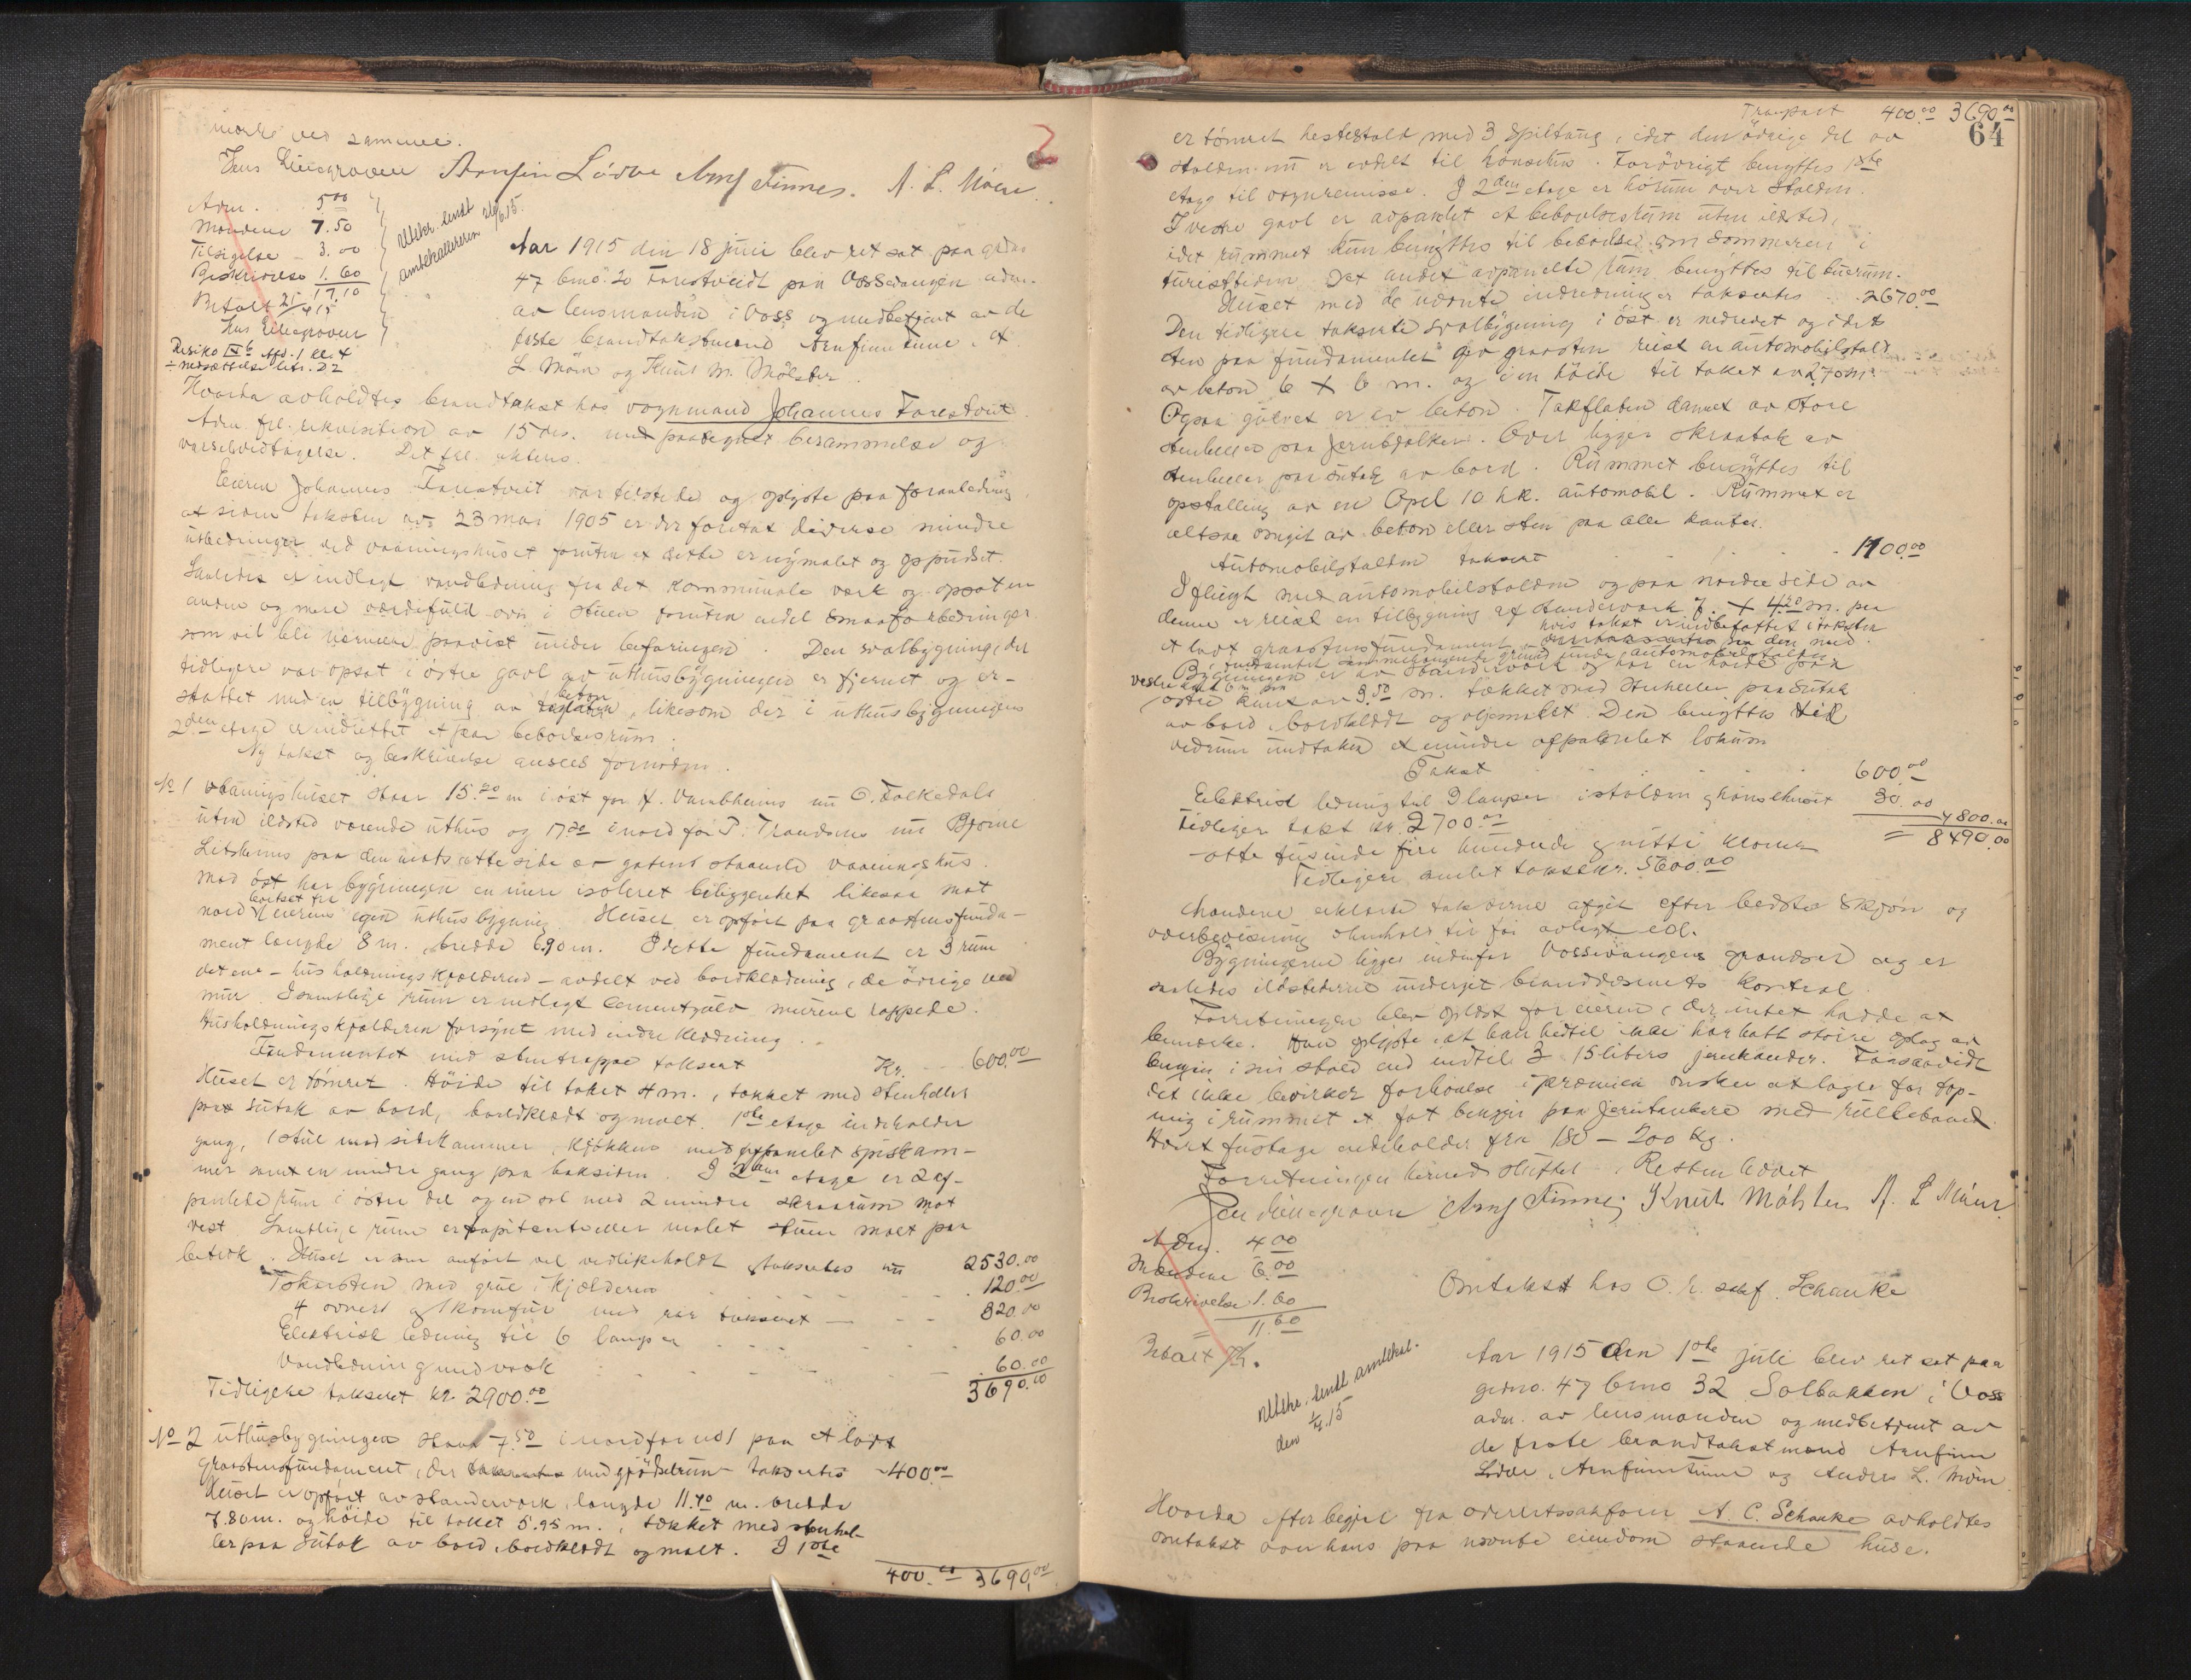 merke ved samme.
Jens Lillegraven Arnfin Lødve Arnf Finnes. A. L. Møen.
Adm. 5.00
Mændene 7.50
Tilsigelse 3.00
Beskrivelse 1.60
17.10
Betalt 21/9 15
Jens Lillegraven
Utskr. sendt
amtskassereren 26/6 15.
Risiko IX b Afd. 1 kl. 4
÷ nedsættelse litr. D 2
Aar 1915 den 18 juni blev ret sat paa grdno
47 bno 20 Forestveidt paa Vossevangen adm.
av lensmanden i Voss og medbetjent av de
faste brandtakstmænd Arnfinn Finne, A.
L Møen og Knut M. Mølster.
Hvorda avholdtes brandtakst hos vognmand Johannes Forestveit.
Adm. frl. rekvisition av 15 ds. med paategnet berammelse og
varselvedtagelse. Det frl. aktens.
Eieren Johannes Forestveit var tilstede og oplyste paa foranledning,
at siden taksten av 23 mai 1905 er der foretat diverse mindre
utbedringer ved vaaningshuset foruten at dette er nymalet og oppudset.
Saaledes er indlagt vandledning fra det kommunale verk og opsat en
anden og mere værdifuld ovn i stuen foruten endel smaaforbedringer
som vil bli nærmere paavist under befaringen. Den svalbygning, der
tidligere var opsat i østre gavl av uthusbygningen er fjernet og er-
stattet med en tilbygning av beton, likesom der i uthusbygningens
2den etage er indrettet et par beboelsesrum.
Ny takst og beskrivelse ansees fornøden.
No 1 vaaningshuset staar 15.20 m i øst for H. Vambheims nu O. Folkedals
uten ildsted værende uthus og 17.20 i nord for P. Trondsens nu Bjørne
Litskeims paa den motsatte side av gaten staaende vaaningshus.
Mod øst har bygningen en mere isoleret beliggenhet likesaa mot
nord bortset fra eierens egen uthusbygning. Huset er opført paa graastensfunda-
ment længde 8 m. bredde 6.90 m. I dette fundament er 3 rum
det ene - husholdningskjælderen - avdelt ved bordklædning, de øvrige ved
mur. I samtlige rum er indlagt cementgulv murene rappede.
Husholdningskjælderen forsynt med indre klædning.
Fundamentet med stentrappe taksert Kr. 600.00
Huset er tømret. Høide til taket 4 m., tækket med stenheller
paa sutak av bord, bordklædt og malt. 1ste etage indeholder
gang, 1 stue med sidekammer, kjøkken med avpanelet spiskam-
mer samt en mindre gang paa baksiden. I 2den etage er 2 af-
panlede rum i østre del og en sal med 2 mindre skraarum mot
vest. Samtlige rum er tapitsert eller malet stuen malt paa
betræk. Huset er som anført vel vedlikeholdt taksertes nu 2530.00
Skorsten med grue i kjælderen 120.00
4 ovner og 1 komfur med rør taksert 320.00
Elektrisk ledning til 6 lamper 60.00
Vandledning med vask 60.00
Tidligere taksert kr. 2900.00 3690.00
No 2 uthusbygningen staar 7.50 i nord for no 1 paa et lavt
graastensfundament, der med gjødselrum taksertes 400.00
Huset er opført av standerverk, længde 11.40 m. bredde
7.80 m. og høide til taket 5.95 m., tækket med stenhel-
ler paa sutak av bord, bordklædt og malt. I 1ste
400.00 3690.00
Transport 400.00 3690.00
64
er tømret hestestald med 3 spiltaug, idet den øvrige del av
stalden nu er avdelt til hønsehus. Forøvrigt benyttes 1ste
etage til vognremisse. I 2den etage er hørum over stalden.
I vestre gavl er avpanlet et beboelsesrum uten ildsted,
idet rummet kun benyttes til beboelse om sommeren i
turisttiden. Det andet avpanelte rum benyttes til buerum.
Huset med de nævnte indredninger taksertes 2670.00
Den tidligere takserte svalbygning i øst er nedrevet og i dets
sted paa fundamentet av graasten reist en automobilstald
av beton 6 x 6 m. og i en høide til taket av 2.70 m.
Ogsaa gulvet er av beton. Takflaten dannet av store
stenheller paa jernbjælker. Over ligger skraatak av
stenheller paa sutak av bord. Rummet benyttes til
opstalling av en Opel 10 h.k. automobil. Rummet er
altsaa omgit av beton eller sten paa alle kanter.
Automobilstalden taksert 1100.00
I flugt med automobilstalden og paa nordre side av
denne er reist en tilbygning af standerverk 7. x 4.20 m. paa
et lavt graastensfundament hvis takst er indbefattet i taksten
sammenhængende grund under automobilstalden
Bygningen er av standerverk og har en høide paa
vestre kant 6 m paa
østre kant av 3.50 m. tækket med stenheller paa sutak
av bord, bordklædt og oljemalet. Den benyttes til
vedrum undtaken et mindre afpanelet lokum
Takst 600.00
Elektrisk ledning til 9 lamper i stalden og hønsehuset 30.00
Tidligere takst kr. 2700.00 4800.00
= 8490.00
- otte tusinde fire hundrede og nitti kroner
Tidligere samlet takst kr. 5600.00
Mændene erklærte taksterne afgit efter bedste skjøn og
overbevisning i henhold til før avlagt ed.
Bygningerne ligger indenfor Vossevangens grændser og er
saaledes ildstederne undergit brandvæsenets kontrol.
Forretningen blev oplæst for eieren, der intet hadde at
bemerke. Han oplyste, at han hedtil ikke har hatt større oplag av
bensin i sin stald end indtil 3 15 liters jernkander. Forsaavidt
det ikke bevirker forhøielse i præmien ønskes at lagre for tap-
ning i rummet et fat bensin paa jerntankere med rullebaand.
Hvert fustage indeholder fra 180 - 200 kg.
Forretningen hermed sluttet. Retten hævet
Jens Lillegraven Arnf Finnes Knut Mølster A. L Møen
Adm. 4.00
Mændene 6.00
Beskrivelse 1.60
= 11.60
Betalt
Utskr. sendt amtskas.
den 1/7.15
Omtakst hos O. r. sakf. Schanke
Aar 1915 den 1ste juli blev ret sat paa
grdno. 47 bno 32 Solbakken i Voss
adm. av lensmanden og medbetjent av
de faste brandtakstmænd Arnfinn
Lødve, Arnfinn Finne og Anders L. Møen
Hvorda efter begjæl fra overretssakfører A. C. Schanke avholdtes
omtakst over hans paa nævnte eiendom staaende huse.